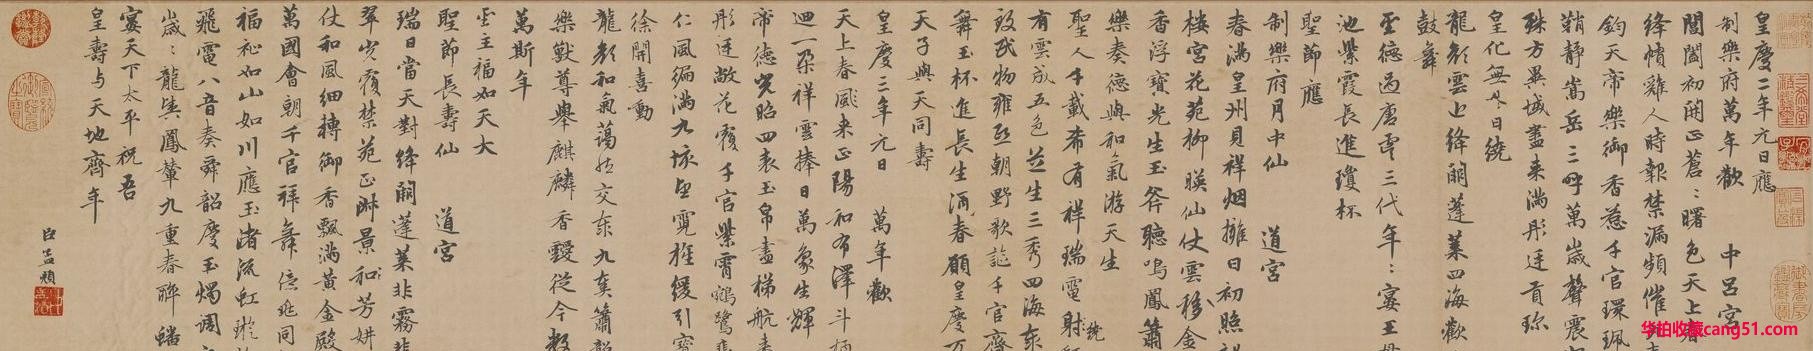 皇慶二年元日應
制樂府萬年歡　中呂宮
閶闔初開正蒼蒼曙色天上春
絳幘雞人時報禁漏頻催
鈞天帝樂御香惹千官環珮
鞘靜嵩岳三呼萬歲聲震
殊方異域盡来滿彤廷貢珎
皇化無
日繞
龍顏雲上絳闕蓬萊四海歡
鼓舞
聖德過唐虞三代年年宴王母
池紫霞長進瓊杯
聖節應
制樂府月中仙　道宮
春滿皇州見祥烟擁日初照
樓宮花苑柳暎仙仗雲移金
香浮寶光生玉斧聽鳴鳳簫
樂奏德與和氣游天生
聖人千載希有祥瑞電射
繞
有雲成五色芝生三秀四海泰
致民物雍熙朝野歌謳千官齊
舞玉杯進長生酒春願皇慶万
天子與天同壽
皇慶三年元日　萬年歡
天上春歸来正陽和布澤斗柄
迴一朶祥雲捧日萬象生輝
帝德光昭四表玉帛盡梯航
彤廷敞花覆千官紫霄鵷鷺
仁風徧滿九垓望霓旌緩引寶
徐開喜動
龍顏和氣藹然交泰九奏簫韶
樂獸尊舉麒麟香靉從今数
萬斯年
聖主福如天大
聖節長壽仙　道宮
瑞日當天對絳闕蓬萊非霧非
翠光覆禁苑正淋景和芳妍
仗和風細轉御香飄滿黃金殿
萬國會朝千官拜舞億兆同
福祉如山如川應玉渚流虹璇
飛電八音奏舜韶慶玉燭調
歲歲龍輿鳳輦九重春醉蟠
宴天下太平祝吾
皇壽与天地齊年
臣孟頫
华拍收藏cang51.com